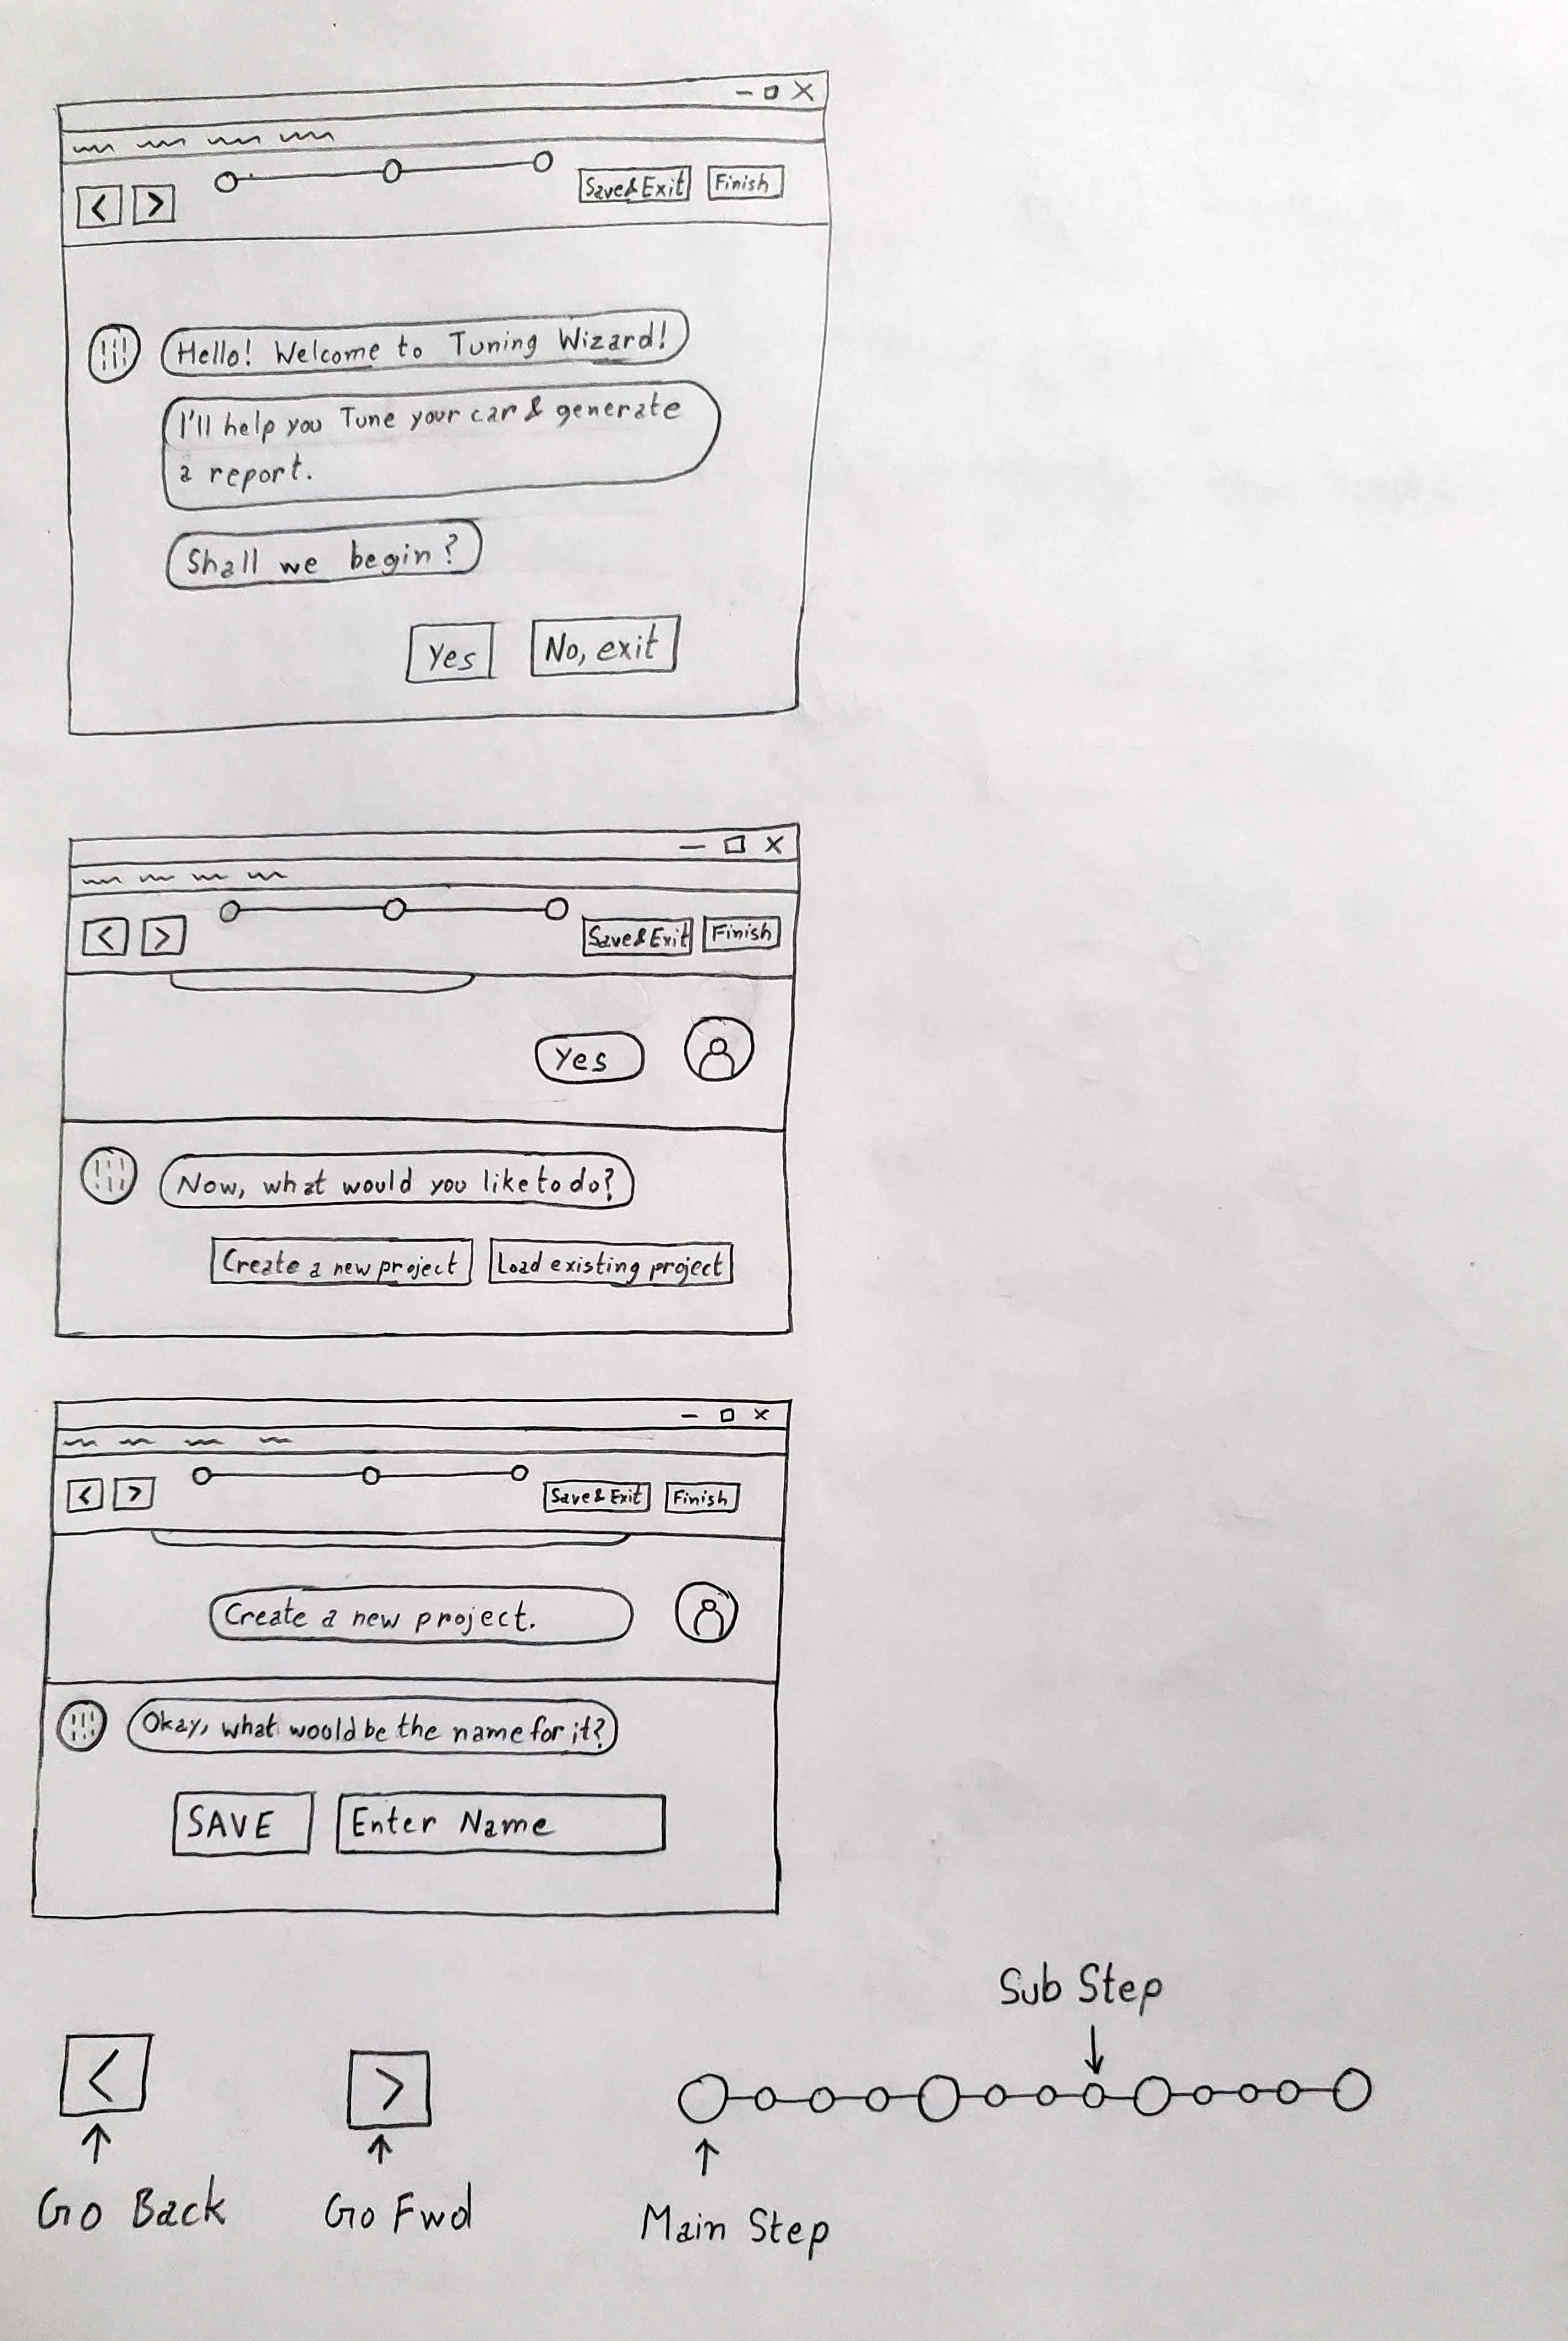 Save&Exit
Finish
Hello! Welcome to Tuning Wizard!
I'll help you Tune your car & generate
a report.
Shall we begin?
Yes
No, exit
Save&Exit
Finish
Yes
Now, what would you like to do?
Create a new project
Load existing project
Save & Exit
Finish
Create a new project.
Okay, what would be the name for it?
SAVE
Enter Name
Sub Step
Go Back
Go Fwd
Main Step